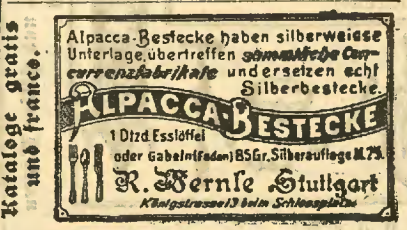 Kataloge gratis
und franco.
Alpacca-Bestecke haben silberweisse
Unterlage, übertreffen sämmtliche Con-
currenzfabrikate und ersetzen echt
Silberbestecke.
ALPACCA-BESTECKE
1 Dtzd Esslöffel
oder Gabeln (Faden) 85 Gr. Silberauflage M. 75.
R. Wernle Stuttgart
Königstrasse 13 beim Schlossplatz